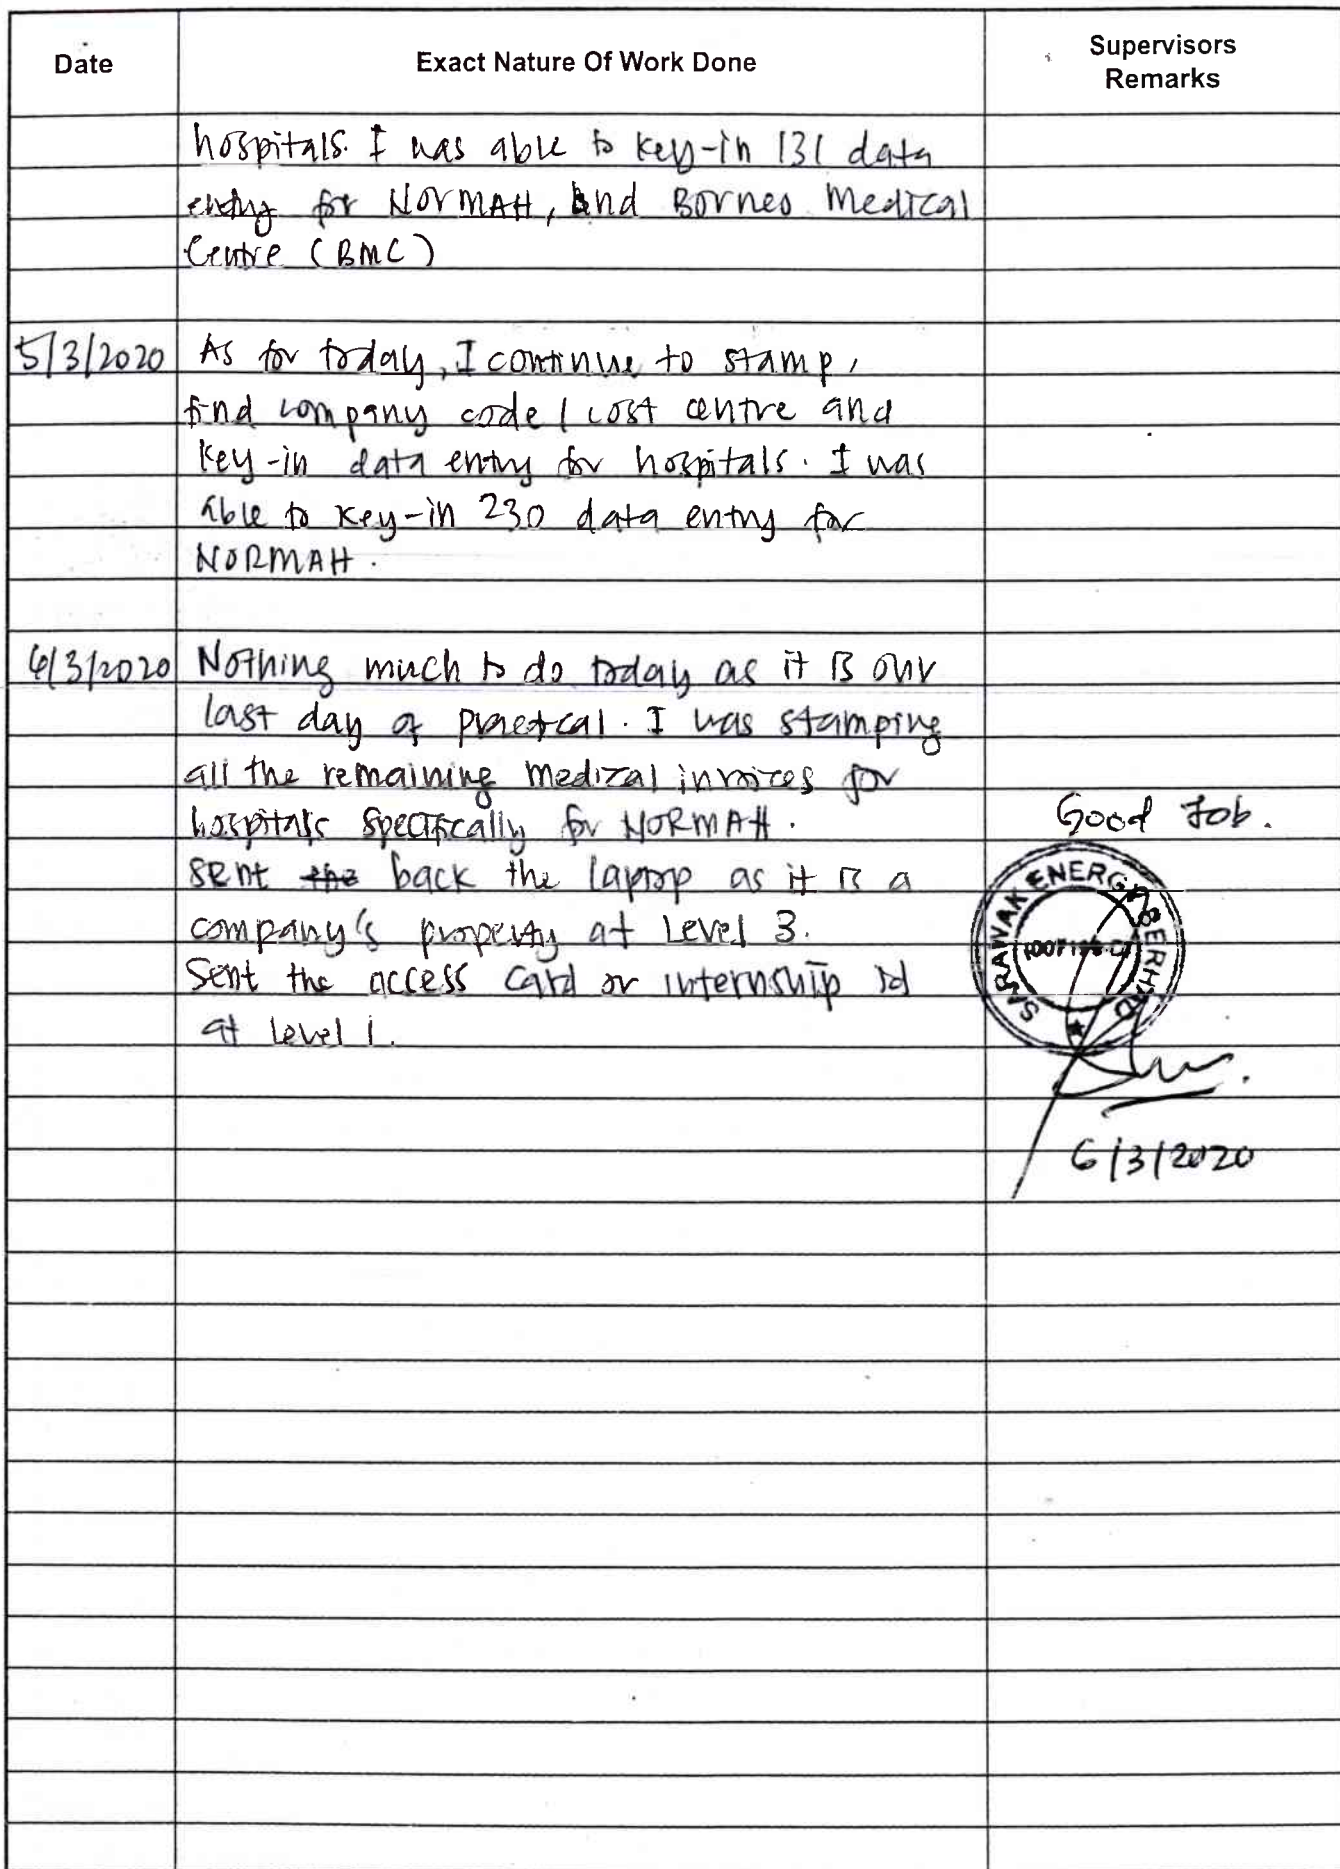 Date Exact Nature Of Work Done Supervisors Remarks
hospitals. I was able to key-in 131 data
entry for NORMAH, and Borneo Medical
Centre (BMC)
5/3/2020 As for today, I continue to stamp,
find company code / cost centre and
key-in data entry for hospitals. I was
able to key-in 230 data entry for
NORMAH.
6/3/2020 Nothing much to do today as it is our
last day of practcal. I was stamping
all the remaining medical invoices for
hospitals specifically for NORMAH.
Good Job.
sent the back the laptop as it is a
company's property at Level 3.
Sent the access card or internship id
at level 1.
SARAWAK ENERGY BERHAD
6/3/2020